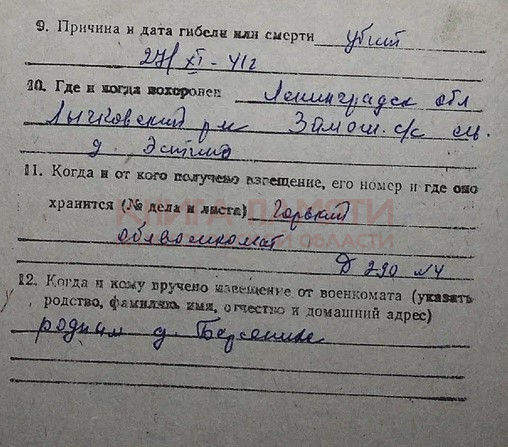 9. Причина и дата гибели или смерти убит
27/XI-41г
10. Где и когда похоронен Ленинградск обл
Лычковский р-н Залюч. с/с
д.
11. Когда и от кого получено извещение, его номер и где оно
хранится (№ дела и листа) Горький
КНИГА ПАМЯТИ
ОБЛАСТИ
облвоенкомат
Д 290 л4
12. Когда и кому вручено извещение от военкомата (указать
родство, фамилию, имя, отчество и домашний адрес)
родным д.